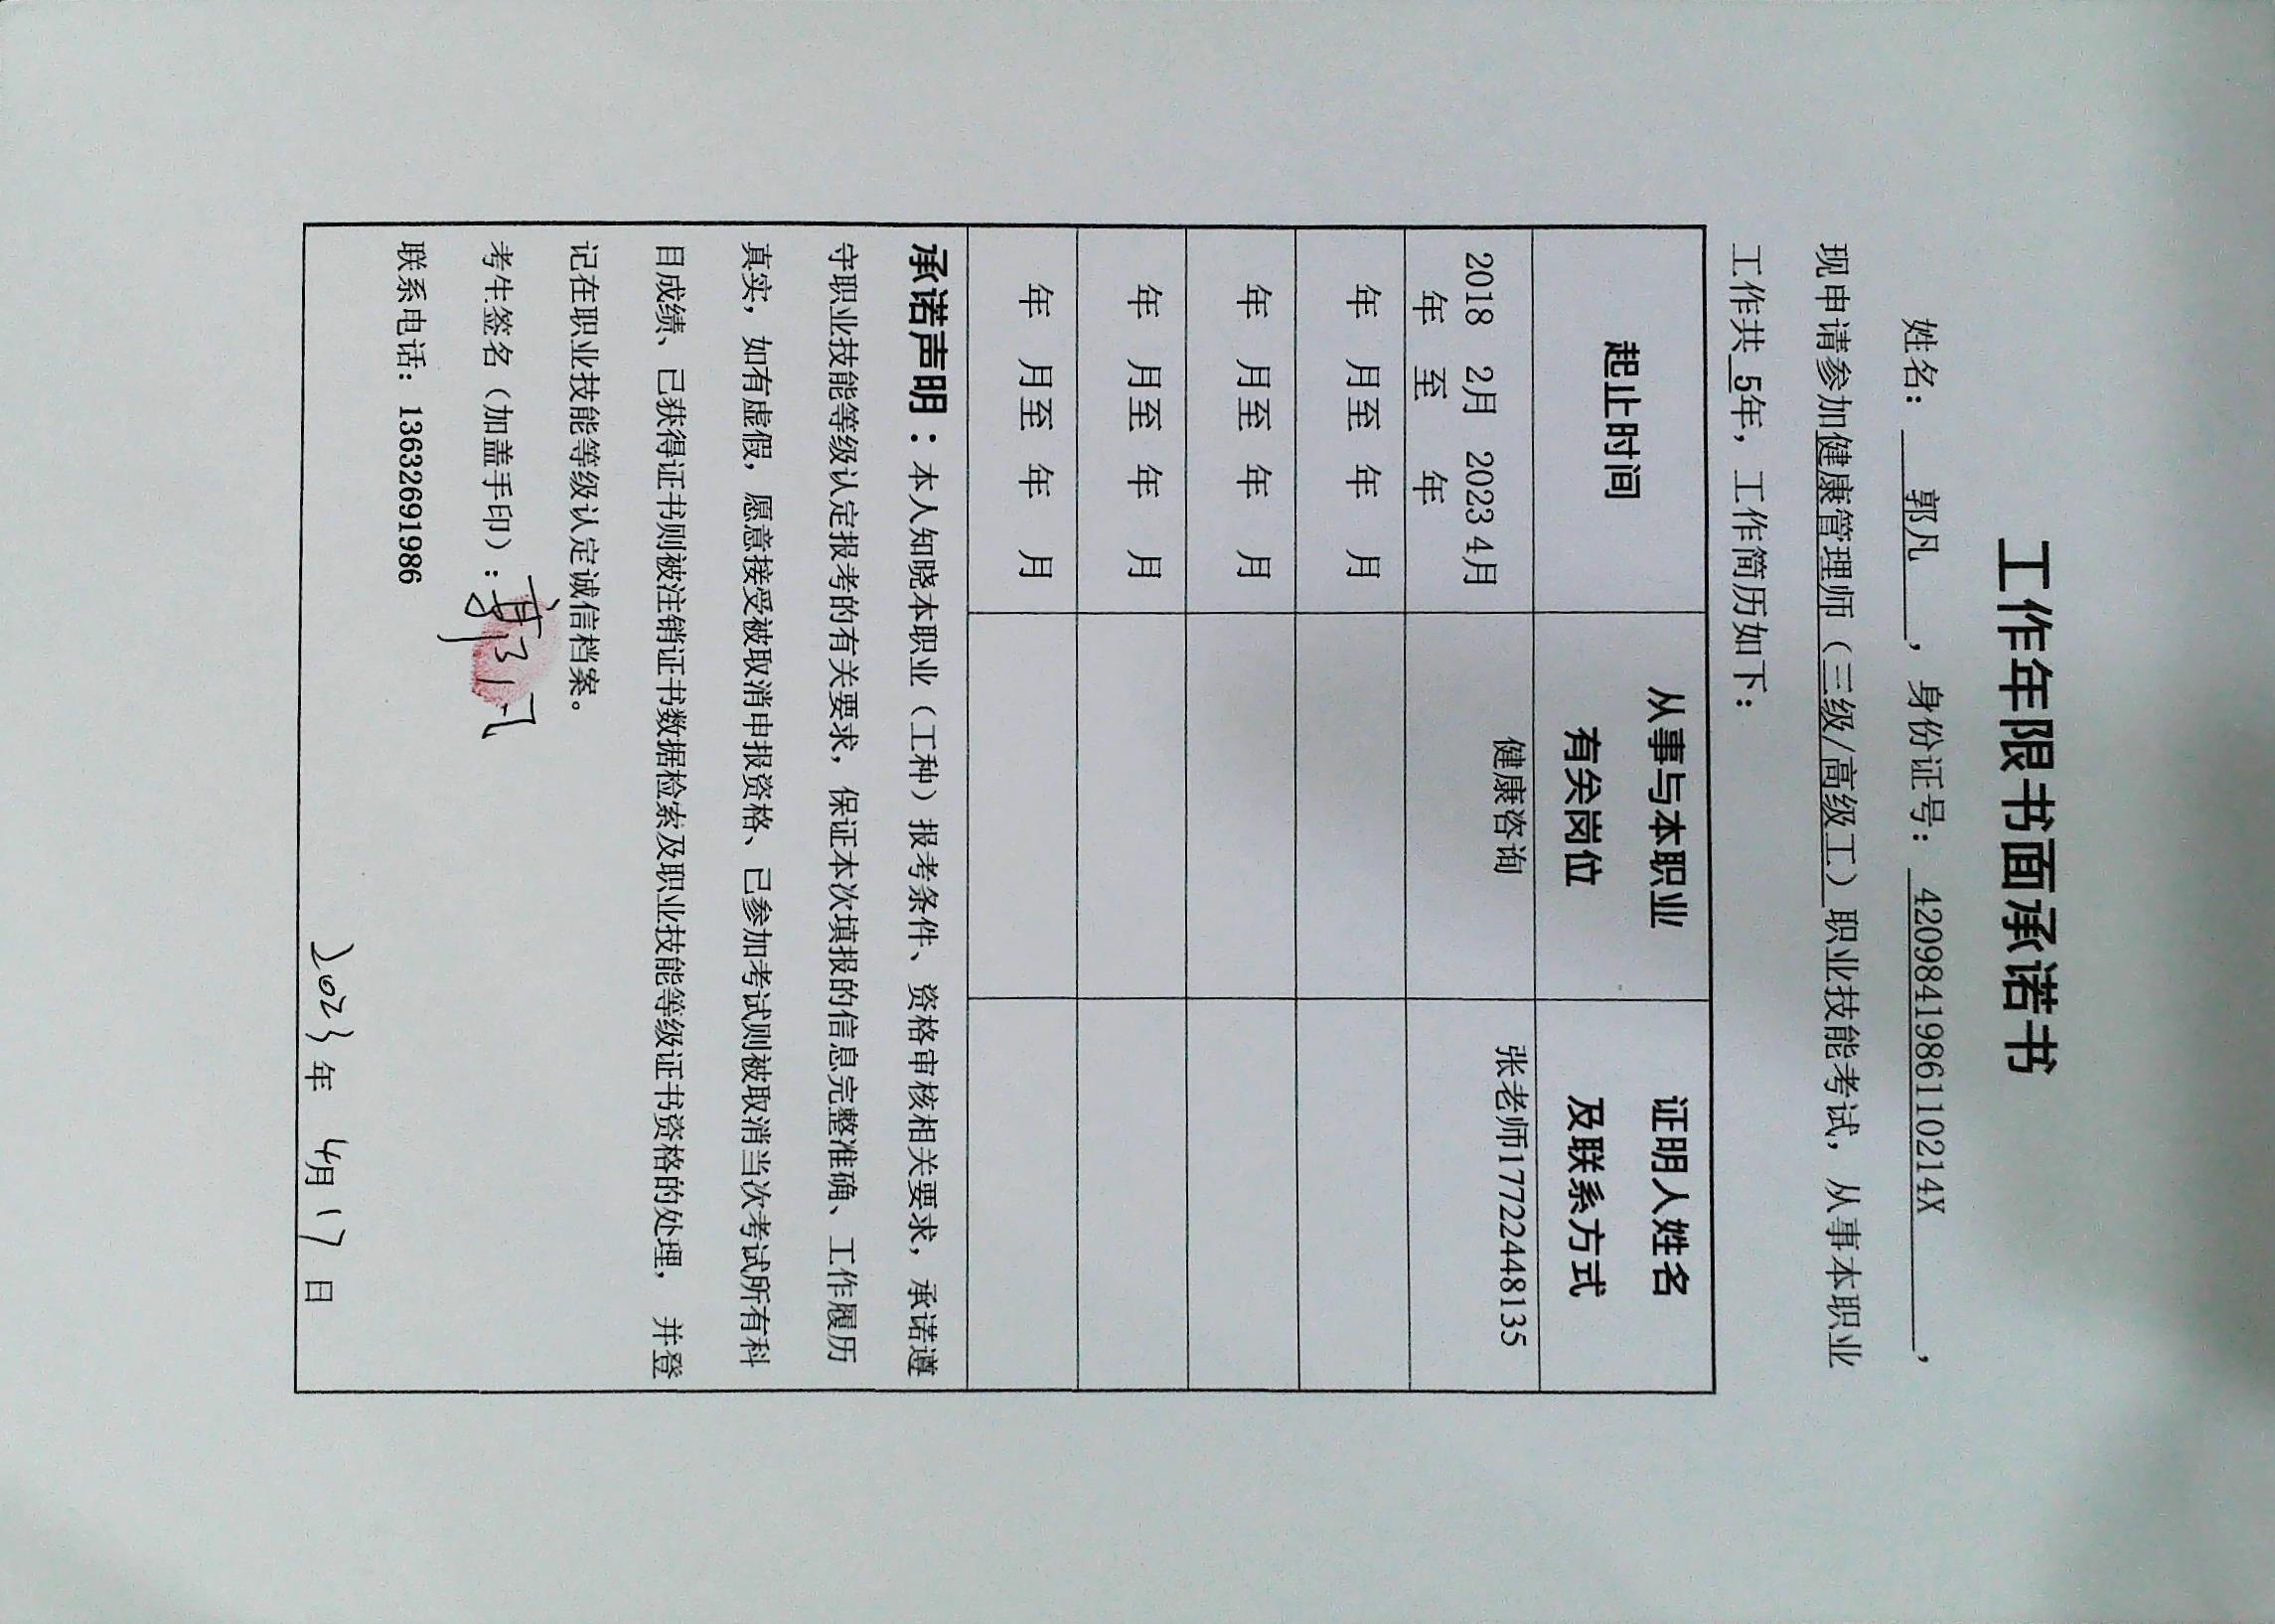 工作年限书面承诺书
姓名：郭凡，身份证号：4209841986110214X，
现申请参加健康管理师（三级/高级工）职业技能考试，从事本职业
工作共 5年，工作简历如下：
起止时间 从事与本职业 证明人姓名
有关岗位 及联系方式
2018 2月 2023 4月 健康咨询 张老师17722448135
年 至 年
年 月至 年 月
年 月至 年 月
年 月至 年 月
年 月至 年 月
承诺声明：本人知晓本职业（工种）报考条件、资格审核相关要求，承诺遵
守职业技能等级认定报考的有关要求，保证本次填报的信息完整准确、工作履历
真实，如有虚假，愿意接受被取消申报资格、已参加考试则被取消当次考试所有科
目成绩、已获得证书则被注销证书数据检索及职业技能等级证书资格的处理，并登
记在职业技能等级认定诚信档案。
考生签名（加盖手印）：郭凡
联系电话：13632691986
2023年 4月 17日